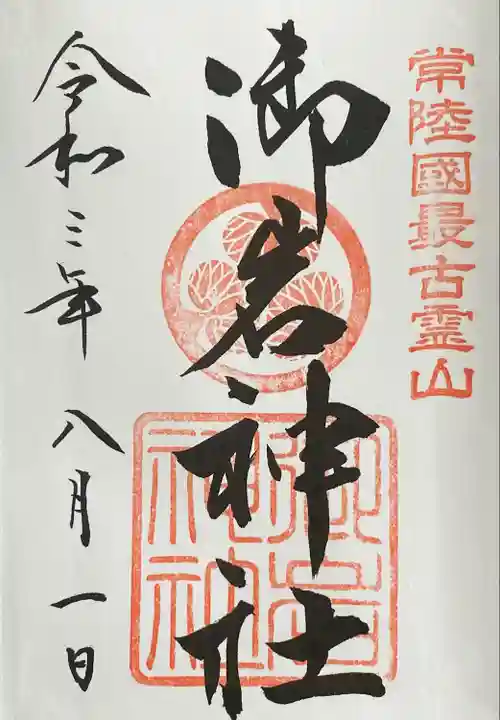 常陸國最古霊山
御岩神社
令和三年 八月 一日
御岩神社